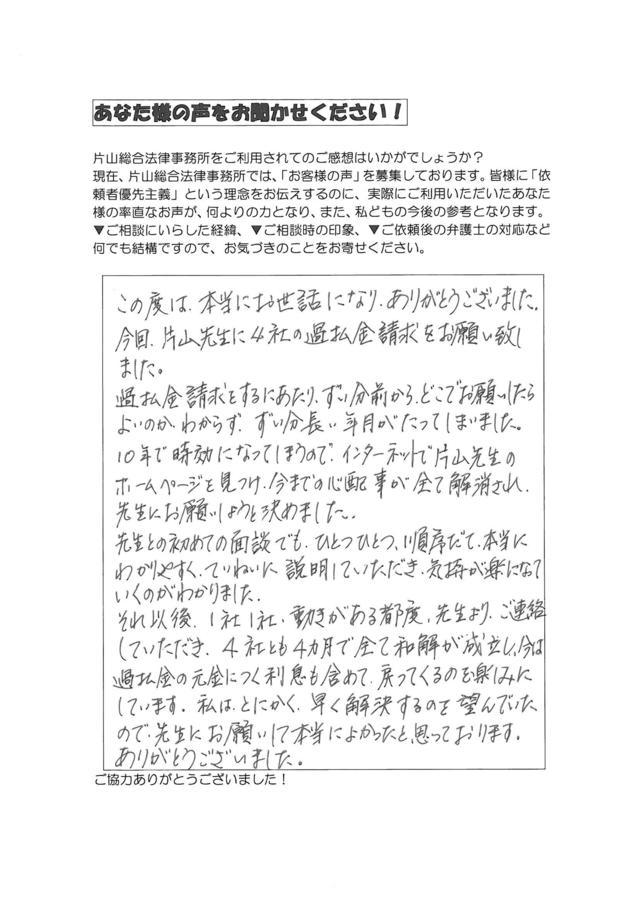 あなた様の声をお聞かせください！
片山総合法律事務所をご利用されてのご感想はいかがでしょうか？
現在、片山総合法律事務所では、「お客様の声」を募集しております。皆様に「依
頼者優先主義」という理念をお伝えするのに、実際にご利用いただいたあなた
様の率直なお声が、何よりの力となり、また、私どもの今後の参考となります。
▼ご相談にいらした経緯、▼ご相談時の印象、▼ご依頼後の弁護士の対応など
何でも結構ですので、お気づきのことをお寄せください。
この度は、本当にお世話になり、ありがとうございました。
今回、片山先生に4社の過払金請求をお願い致し
ました。
過払金請求をするにあたり、ずい分前から、どこでお願いしたら
よいのか、わからず、ずい分長い年月がたってしまいました。
10年で時効になってしまうので、インターネットで片山先生の
ホームページを見つけ、今までの心配事が全て解消され、
先生にお願いしようと決めました。
先生との初めての面談でも、ひとつひとつ、順序だて、本当に
わかりやすく、ていねいに説明していただき、気持が楽になって
いくのがわかりました。
それ以後、1社1社、動きがある都度、先生より、ご連絡
していただき、4社とも4カ月で全て和解が成立し、今は
過払金の元金につく利息も含めて、戻ってくるのを楽しみに
しています。私は、とにかく、早く解決するのを望んでいた
ので、先生にお願いして本当によかったと思っております。
ありがとうございました。
ご協力ありがとうございました！